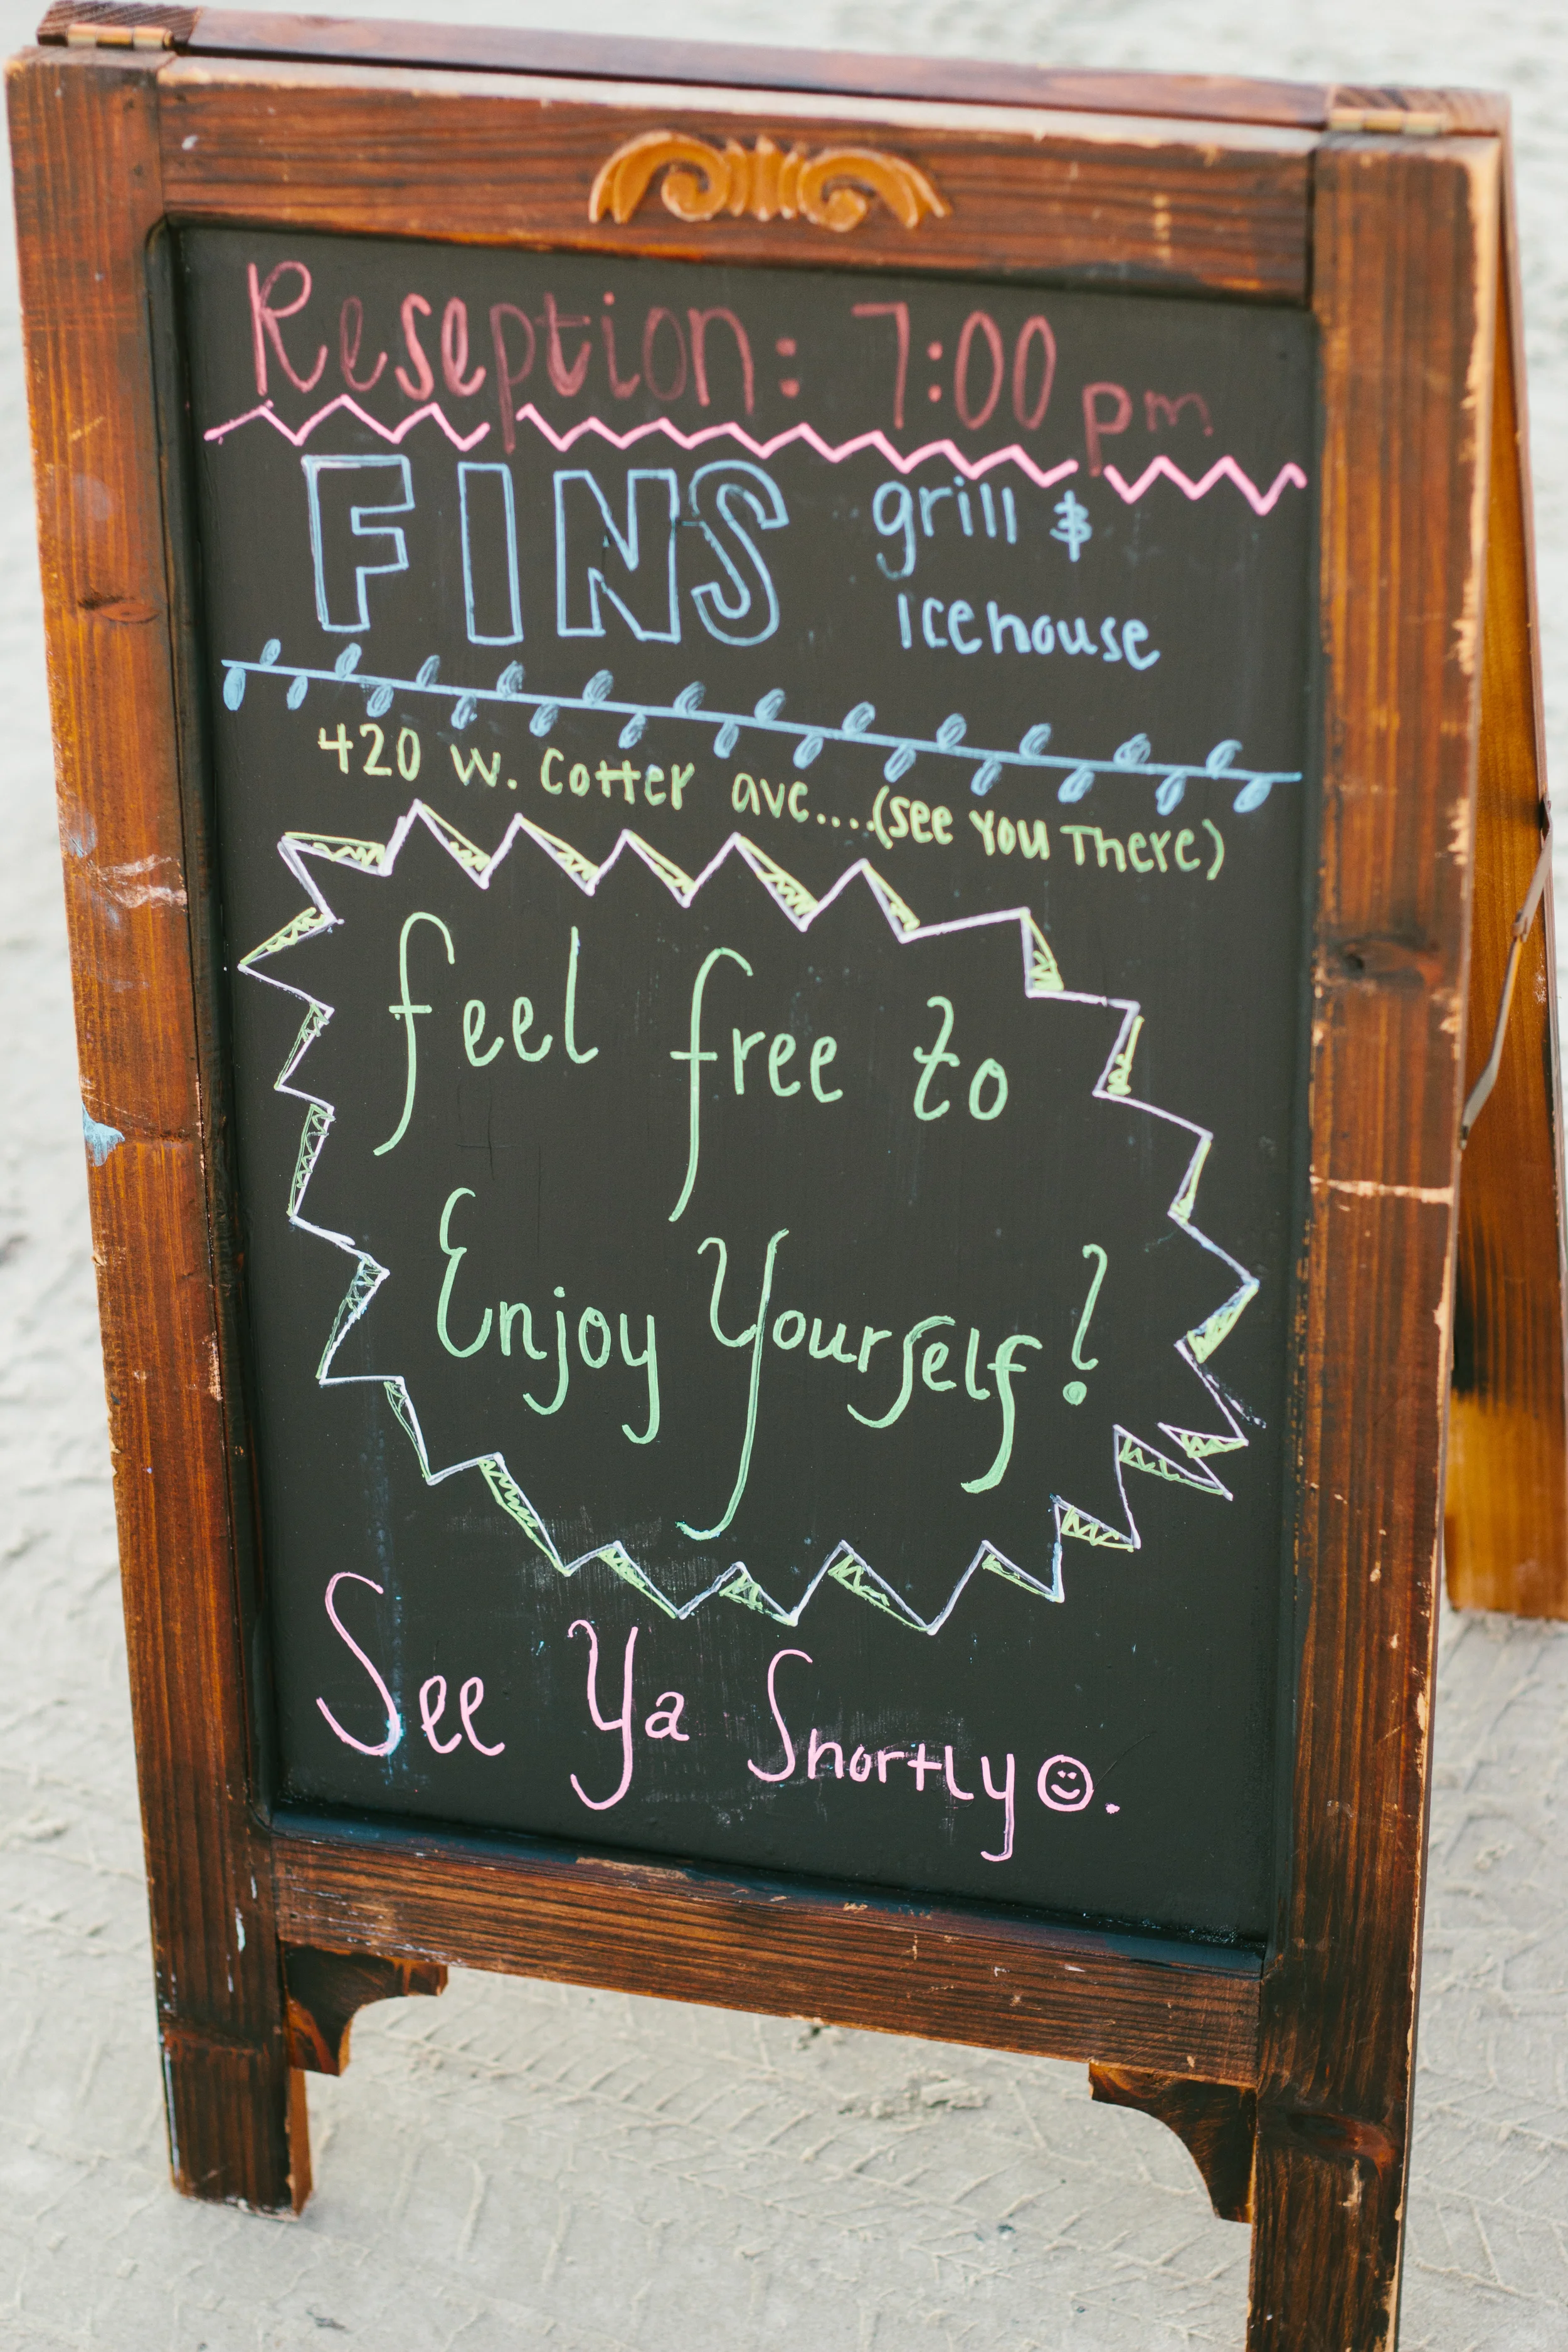 Reseption: 7:00 pm
FINS grill &
Icehouse
420 W. Cotter ave....(see you There)
feel free to
Enjoy Yourself!
See Ya Shortly☺.